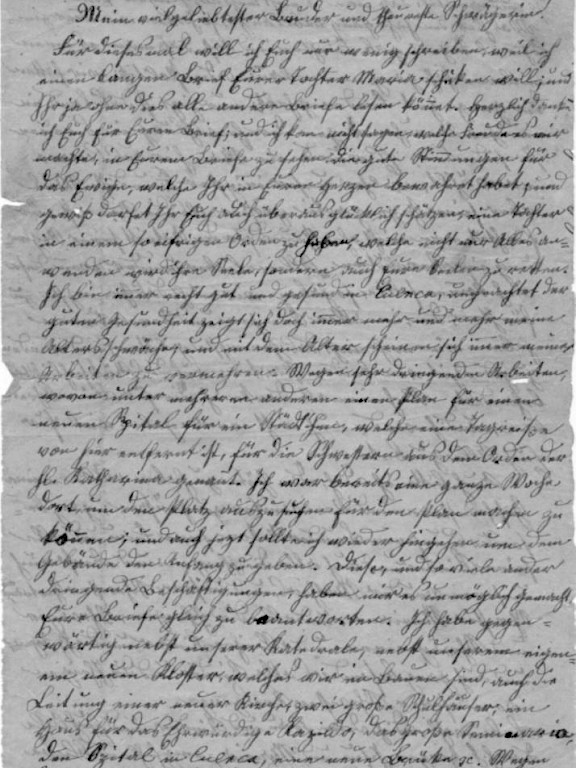 Mein vielgeliebtester Bruder und theuerste Schwägerin.
Für diesesmal will ich Euch nur wenig schreiben, weil ich
einen langen Brief Eurer Tochter Maria schicken will, und
Ihr ja ohne dies alle andere Briefe lesen könnet. Herzlich danke
ich Euch für Euren Brief; und ich kan nicht sagen, welche Freude es mir
machte, in Eurem Briefe zu sehen, die gute Stimmungen für
das Ewige, welche Ihr in Euren Herzen bewahret habet; und
gewiß dorfet Ihr Euch auch überaus glücklich schätzen, eine Tochter
in einem so eifrigen Orden zu haben, welche nicht nur Alles an-
wenden wird ihre Seele, sondern auch Eure beiden zu retten.
Ich bin imer recht gut und gesund in Cuenca, ungeachtet der
guten Gesundheit zeigt sich doch imer mehr und mehr meine
Altersschwäche; und mit dem Alter scheinen sich imer meine
Arbeiten zu vermehren. Wegen sehr dringenden Arbeiten,
wovon unter mehreren anderen einen Plan für einen
neuen Spital für ein Städtchen, welche eine Tagreise
von hier entfernt ist, für die Schwestern aus dem Orden der
hl. Katharina genant. Ich war bereits eine ganze Woche
dort, um den Platz auszusuchen für den Plan machen zu
können; und auch jezt sollte ich wieder hingehen um dem
Gebäude den Anfang zu geben. Diese, und so viele ander
dringende Beschäftigungen, haben mir es unmöglich gemacht
Eure Briefe gleich zu beantworten. Ich habe gegen-
wärtig nebst unserer Katedrale, nebst unserem eigen-
em neuen Kloster, welches wir im Bauen sind, auch die
Leitung einer neuer Kirche, zwei große Schulhäuser, ein
Haus für das Ehrwürdige Kapitel, das große Seminario,
den Spital in Cuenca, eine neue Brücke ec. Wegen